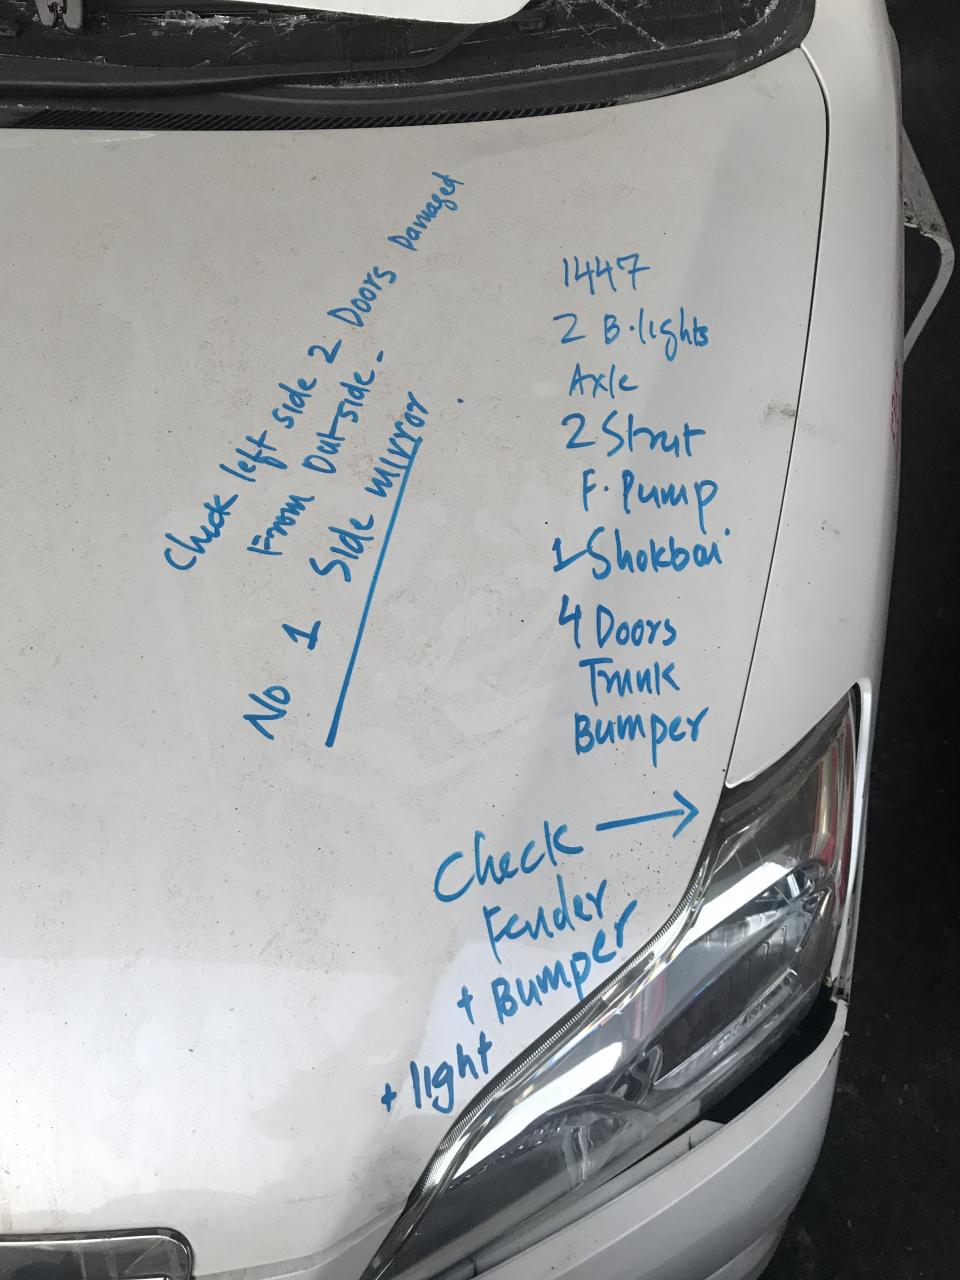 Check left side 2 Doors Damaged
From Outside -
No 1 Side mirror
1447
2 B.lights
Axle
2 Strut
F. Pump
1 Shokbar
4 Doors
Trunk
Bumper
Check →
Fender
+ Bumper
+ light